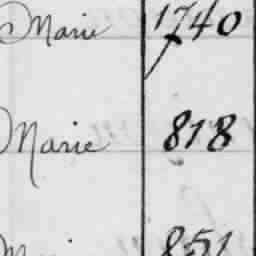 Marie 1740
Marie 818
851